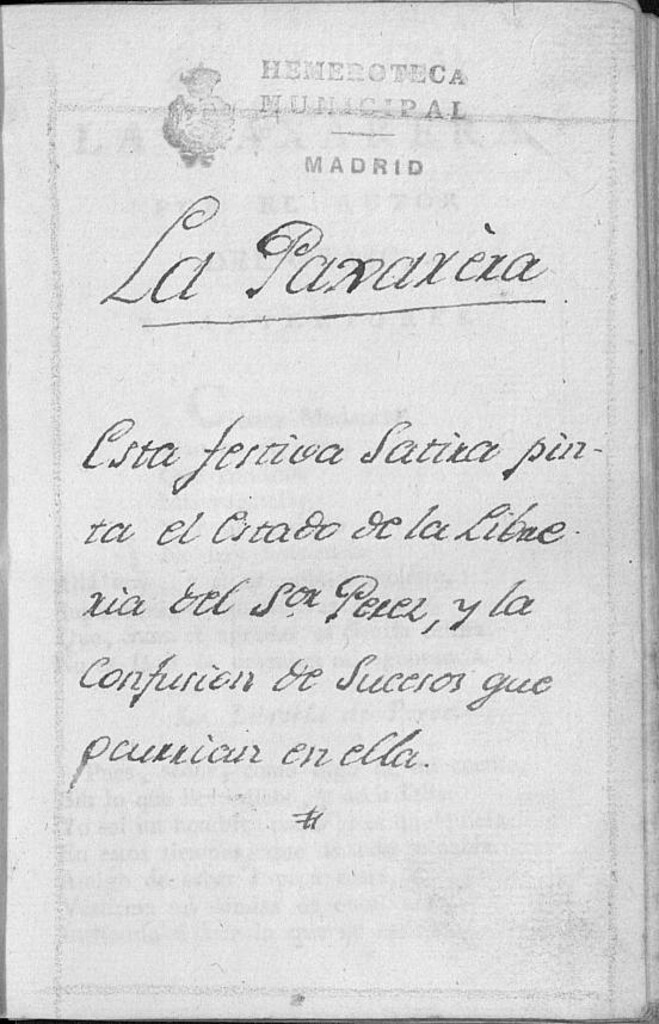 HEMEROTECA
MUNICIPAL
MADRID
La Paxarèra
Esta festiva Satira pin-
ta el estado de la Libre-
ria del Sor Perez, y la
Confusion de Sucesos que
ocurrian en ella.